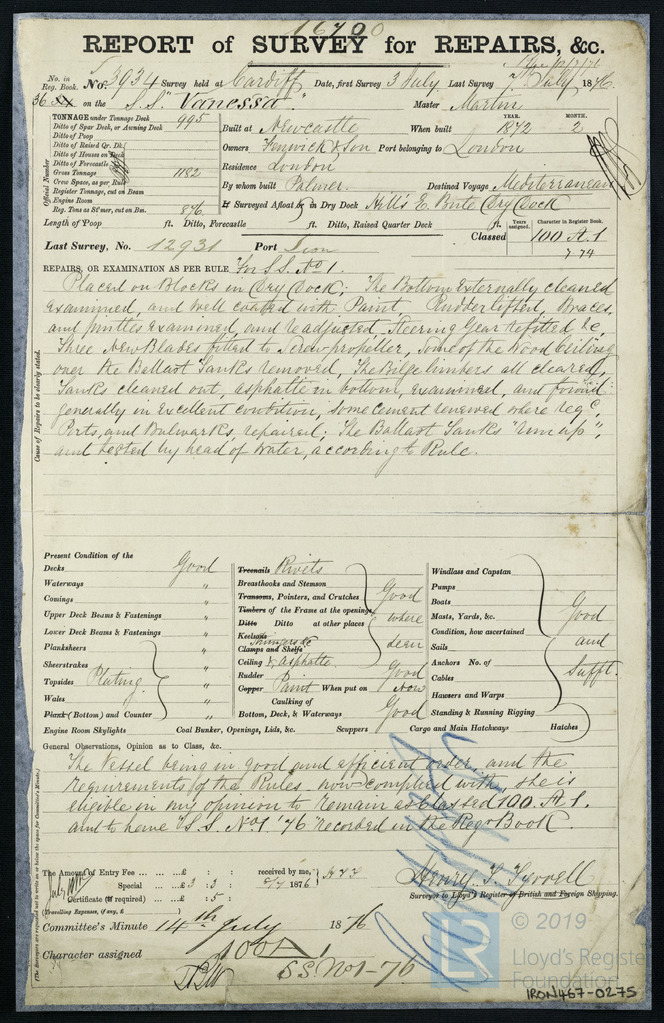 16700
REPORT of SURVEY for REPAIRS, &c.
No. in Reg. Book. No. 3934 Survey held at Cardiff Date, first Survey 3 July Last Survey 7th July 1876
on the S.S. "Vanessa" Master Martin
TONNAGE under Tonnage Deck 995
Ditto of Spar Deck, or Awning Deck
Ditto of Poop
Ditto of Raised Qr. Dk.
Ditto of Houses on Deck
Ditto of Forecastle
Gross Tonnage 1182
Crew Space, as per Rule
Register Tonnage, cut on Beam
Engine Room
Reg. Tons as St'mer, cut on Bm. 876
Official Number
Built at Newcastle When built YEAR. 1872 MONTH. 2
Owners Fenwick & Son Port belonging to London
Residence London
By whom built Palmer Destined Voyage Mediterranean
If Surveyed Afloat or in Dry Dock Hill's E. Bute Dry Dock
Length of Poop ft. Ditto, Forecastle ft. Ditto, Raised Quarter Deck ft.
Years assigned. Character in Register Book.
Last Survey, No. 12931 Port Iron Classed 100 A.1
7 74
REPAIRS, OR EXAMINATION AS PER RULE For S.S. No 1.
Cause of Repairs to be clearly stated.
Placed on Blocks in Dry Dock; The Bottom externally cleaned
examined, and well coated with Paint, Rudder lifted, Braces,
and pintles examined, and readjusted, Steering Gear refitted &c,
Three New Blades fitted to Screw propeller, Some of the Wood Ceiling
over the Ballast Tanks removed, The Bilge limbers all cleared,
Tanks cleaned out, asphalte in bottom, examined, and found
generally in Excellent condition, some cement renewed where reqd.
Ports, and Bulwarks, repaired; The Ballast Tanks "run up",
and tested by head of Water, according to Rule.
Present Condition of the
Decks Good
Waterways "
Comings "
Upper Deck Beams & Fastenings "
Lower Deck Beams & Fastenings "
Planksheers "
Sheerstrakes "
Topsides Plating "
Wales "
Plank (Bottom) and Counter "
Engine Room Skylights
Treenails Rivets
Breasthooks and Stemson
Transoms, Pointers, and Crutches Good
Timbers of the Frame at the openings where
Ditto Ditto at other places seen
Keelsons
Stringers &c
Clamps and Shelfs
Ceiling & asphalte
Rudder Good
Copper Paint When put on Now
Caulking of
Bottom, Deck, & Waterways Good
Coal Bunker, Openings, Lids, &c. Scuppers Cargo and Main Hatchways Hatches
Windlass and Capstan
Pumps
Boats Good
Masts, Yards, &c.
Condition, how ascertained and
Sails
Anchors No. of Sufft.
Cables
Hawsers and Warps
Standing & Running Rigging
General Observations, Opinion as to Class, &c.
The Vessel being in good and efficient order, and the
requirements of the Rules, now complied with, she is
eligible in my opinion to remain as Classed 100. A 1.
and to have "S.S. No 1 '76" recorded in the Regr Book.
The Amount of Entry Fee ... ... ... £ : : received by me,
Special ... ... £ 3 : 3 : 8/7 1876
Certificate (if required) ... £ : 5 :
(Travelling Expenses, if any, £ )
Henry T. Tyrrell
Surveyor to Lloyd's Register of British and Foreign Shipping.
Committee's Minute 14th July 1876
Character assigned 100 A 1
S S No 1 - 76
© 2019
Lloyd's Register
Foundation
IRON467-0275